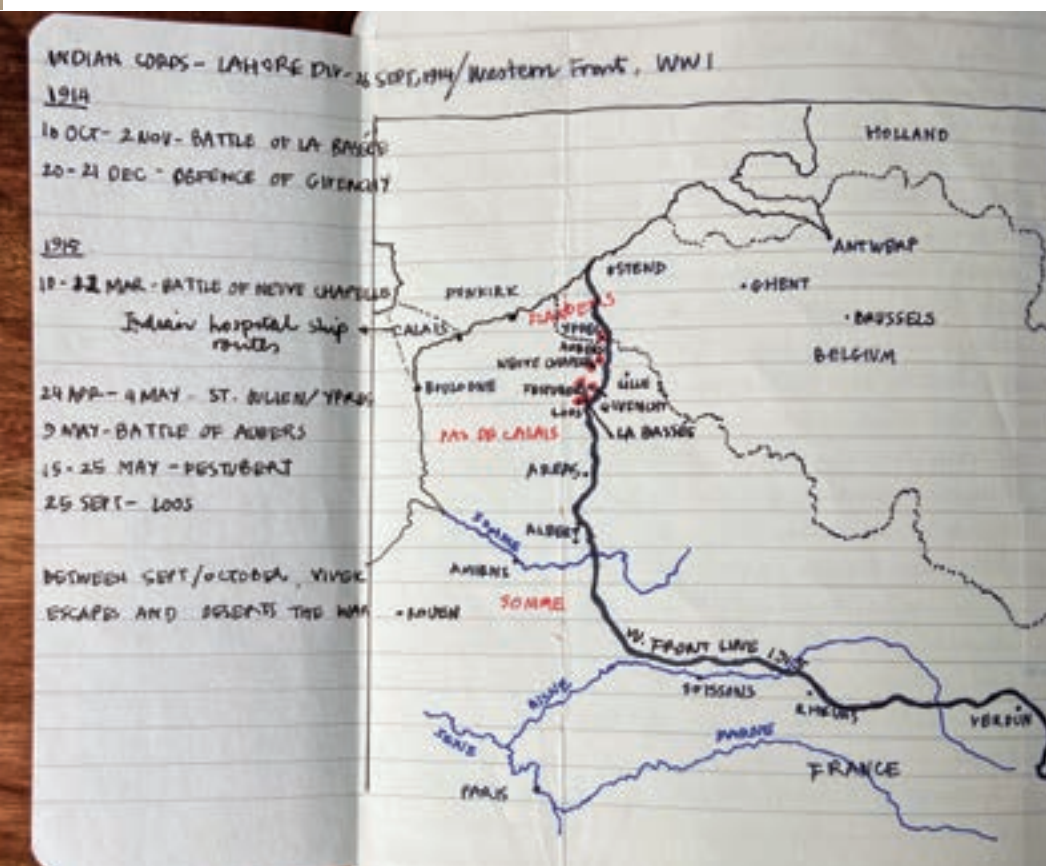 INDIAN CORPS - LAHORE DIV - 26 SEPT, 1914 / Western Front, WW1
1914
10 OCT - 2 NOV - BATTLE OF LA BASSÉE
20-21 DEC - DEFENCE OF GIVENCHY
1915
10-22 MAR - BATTLE OF NEUVE CHAPELLE
Indian hospital ship
routes
24 APR - 4 MAY - ST. JULIEN/YPRES
9 MAY - BATTLE OF AUBERS
15-25 MAY - FESTUBERT
25 SEPT - LOOS
BETWEEN SEPT/OCTOBER, VIVEK
ESCAPES AND DESERTS THE WAR
HOLLAND
ANTWERP
OSTEND
GHENT
DUNKIRK
FLANDERS
BRUSSELS
CALAIS
YPRES
AUBERS
BELGIUM
NEUVE CHAPELLE
BOULOGNE
FESTUBERT
LILLE
GIVENCHY
LOOS
LA BASSÉE
PAS DE CALAIS
ARRAS
SOMME
ALBERT
AMIENS
SOMME
ROUEN
W. FRONT LINE 1915
SOISSONS
AISNE
RHEIMS
VERDUN
SEINE
MARNE
FRANCE
PARIS